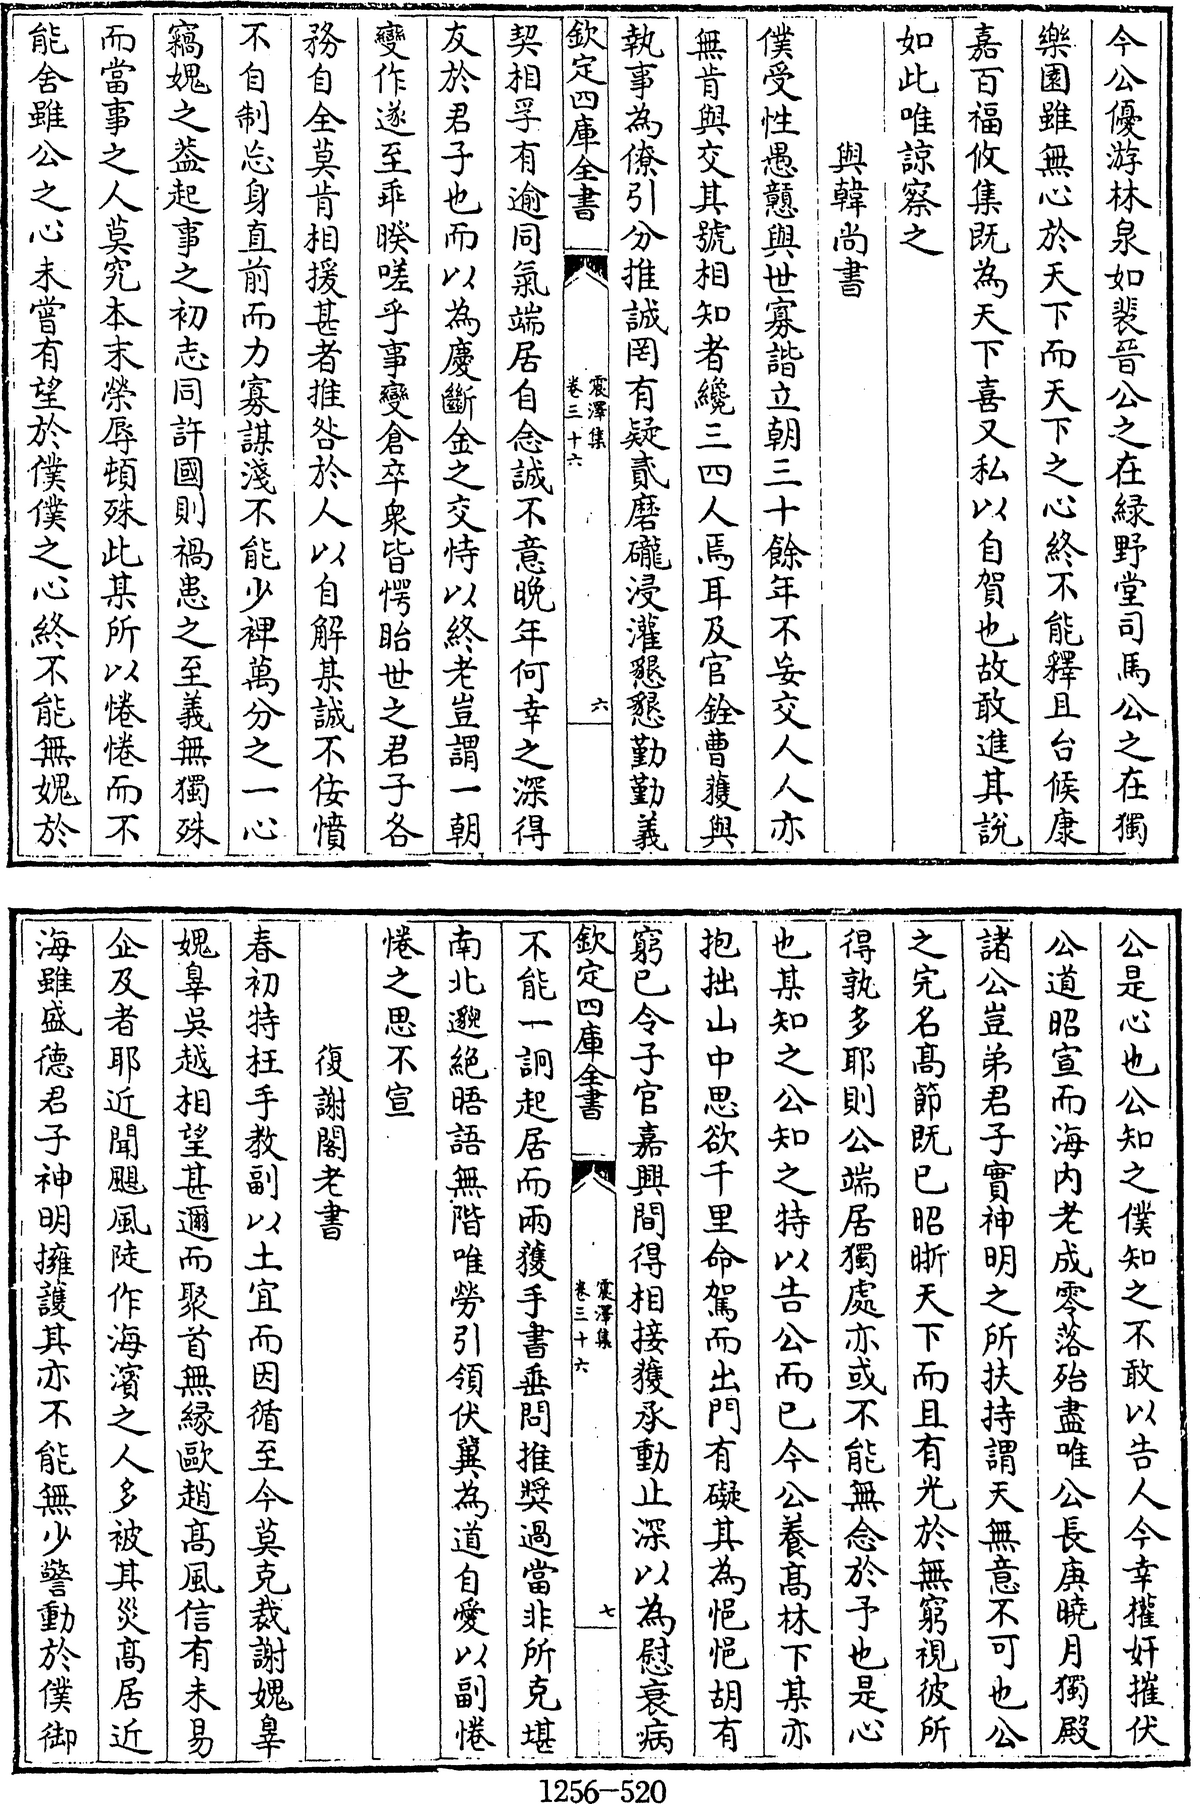 今公優游林泉如裴晉公之在緑野堂司馬公之在獨
樂園雖無心於天下而天下之心終不能釋且台候康
嘉百福攸集既為天下喜又私以自賀也故敢進其說
如此唯諒察之
與韓尚書
僕受性愚戇與世寡諧立朝三十餘年不妄交人人亦
無肯與交其號相知者纔三四人焉耳及官銓曹獲與
執事為僚引分推誠罔有疑貳磨礲浸灌懇懇勤勤義
欽定四庫全書
震澤集
卷三十六
六
契相孚有逾同氣端居自念誠不意晚年何幸之深得
友於君子也而以為慶斷金之交恃以終老豈謂一朝
變作遂至乖暌嗟乎事變倉卒衆皆愕眙世之君子各
務自全莫肯相援甚者推咎於人以自解某誠不佞憤
不自制忘身直前而力寡謀淺不能少裨萬分之一心
竊媿之葢起事之初志同許國則禍患之至義無獨殊
而當事之人莫究本末榮辱頓殊此某所以惓惓而不
能舍雖公之心未嘗有望於僕僕之心終不能無媿於
公是心也公知之僕知之不敢以告人今幸權奸摧伏
公道昭宣而海内老成零落殆盡唯公長庚曉月獨殿
諸公豈弟君子實神明之所扶持謂天無意不可也公
之完名髙節既已昭晣天下而且有光於無窮視彼所
得孰多耶則公端居獨處亦或不能無念於予也是心
也某知之公知之特以告公而已今公養髙林下某亦
抱拙山中思欲千里命駕而出門有礙其為悒悒胡有
窮已令子官嘉興間得相接獲承動止深以為慰衰病
欽定四庫全書
震澤集
卷三十六
七
不能一詗起居而兩獲手書垂問推奬過當非所克堪
南北邈絶晤語無階唯勞引領伏冀為道自愛以副惓
惓之思不宣
復謝閣老書
春初特枉手教副以土宜而因循至今莫克裁謝媿辠
媿辠吳越相望甚邇而聚首無縁歐趙髙風信有未易
企及者耶近聞颶風陡作海濱之人多被其災髙居近
海雖盛德君子神明擁護其亦不能無少警動於僕御
1256—520